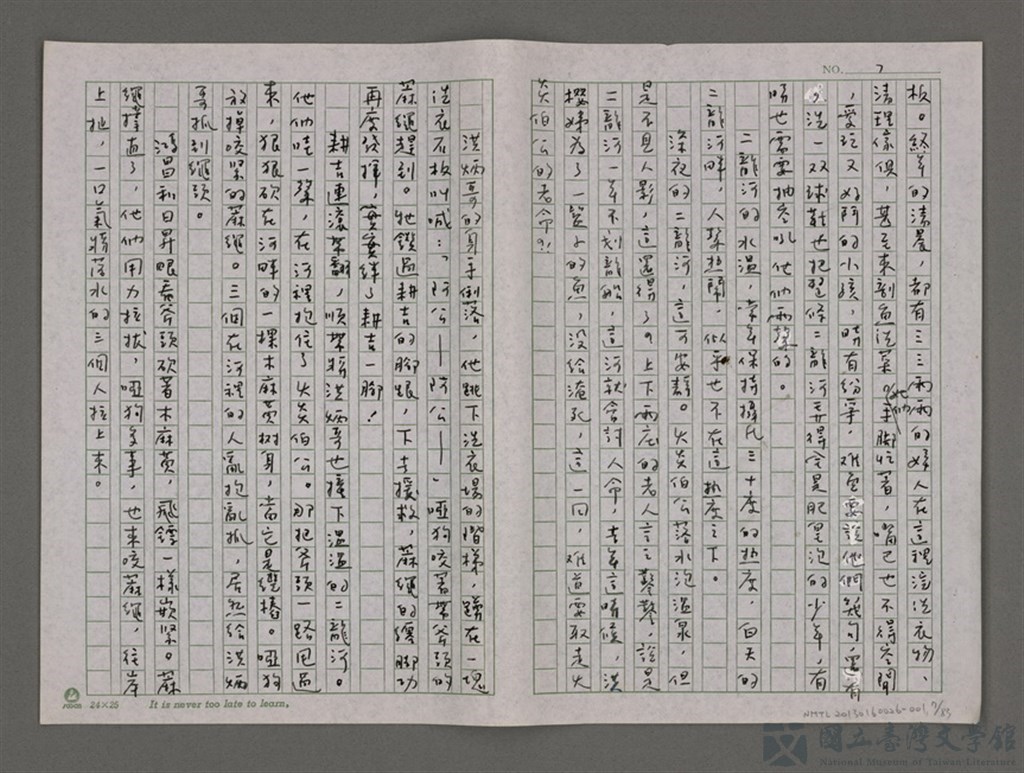 NO. 7
板。終年的清晨，都有三三兩兩的婦人在這裡浣洗衣物、
清理傢俱，甚至來剖魚洗菜，她們手腳忙著，嘴巴也不得空閒
，愛玩又好鬥的小孩，時有紛爭，難免要說他們幾句，還有
洗一双球鞋也把整條二龍河弄得全是肥皂泡的少年，有
時也需要抽空吼他們兩聲的。
二龍河的水溫，常年保持攝氏三十度的热度，白天的
二龍河畔，人聲热鬧，似乎也不在這热度之下。
深夜的二龍河，這可安靜。火炎伯公落水泡溫泉，但
是不見人影，這還得了？上下兩庄的老人言之鑿鑿，說是
二龍河一年不划龍船，這河就會討人命，去年這時候，洪
樱姊為了一籃子的魚，沒給淹死，這一回，難道要取走火
炎伯公的老命？！
洪炳哥的身手倒落，他跳下洗衣場的階梯，蹲在一塊
洗衣石板叫喊：「阿公——阿公——」啞狗咬著帶斧頭的
蔴繩趕到。牠鑽過耕吉的腳跟，下去援救，蔴繩的纏腳功
再度發揮，實實絆了耕吉一腳！
耕吉連滾帶翻，順帶將洪炳哥也撞下溫溫的二龍河。
他們哇一聲，在河裡抱住了火炎伯公。那把斧頭一路甩過
來，狠狠砍在河畔的一棵木麻黃树身，當它是纜樁。啞狗
放掉咬緊的蔴繩。三個在河裡的人亂抱亂抓，居然給洪炳
哥抓到繩頭。
鴻昌和日昇眼看斧頭砍著木麻黃，飛鏢一樣嵌緊。蔴
繩撑直了，他們用力拉拔，啞狗多事，也來咬蔴繩，往岸
上拖，一口氣將落水的三個人拉上來。
24×25 It is never too late to learn.
NMTL20130160026-001, 7/33
國立臺灣文學館
National Museum of Taiwan Literature